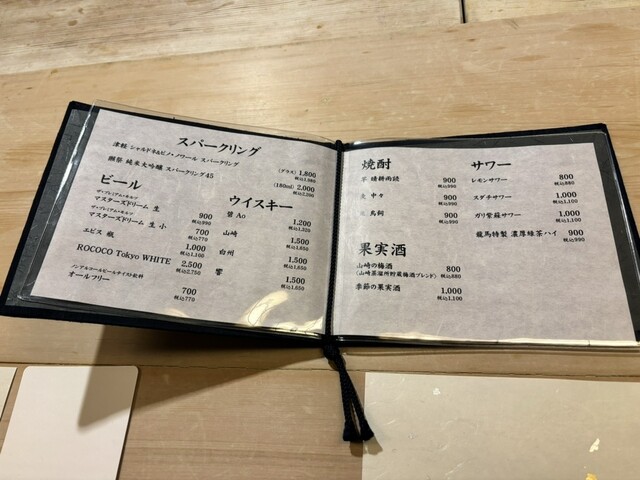 スパークリング
津軽 シャルドネ&ピノ・ノワール スパークリング (グラス) 1,800
税込1,980
獺祭 純米大吟醸 スパークリング45 (180ml) 2,000
税込2,200
ビール
ザ・プレミアム・モルツ
マスターズドリーム 生 900
税込990
ザ・プレミアム・モルツ
マスターズドリーム 生 小 700
税込770
エビス 瓶 1,000
税込1,100
ROCOCO Tokyo WHITE 2,500
税込2,750
ノンアルコールビールテイスト飲料
オールフリー 700
税込770
ウイスキー
碧 Ao 1,200
税込1,320
山崎 1,500
税込1,650
白州 1,500
税込1,650
響 1,500
税込1,650
焼酎
晴耕雨読 900
税込990
中々 900
税込990
鳥飼 900
税込990
果実酒
山崎の梅酒 800
(山崎蒸溜所貯蔵梅酒ブレンド) 税込880
季節の果実酒 1,000
税込1,100
サワー
レモンサワー 800
税込880
スダチサワー 1,000
税込1,100
ガリ紫蘇サワー 1,000
税込1,100
龍馬特製 濃厚緑茶ハイ 900
税込990